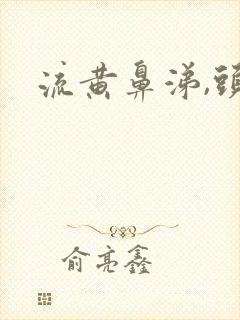 流黄鼻涕,頭
俞亮鑫